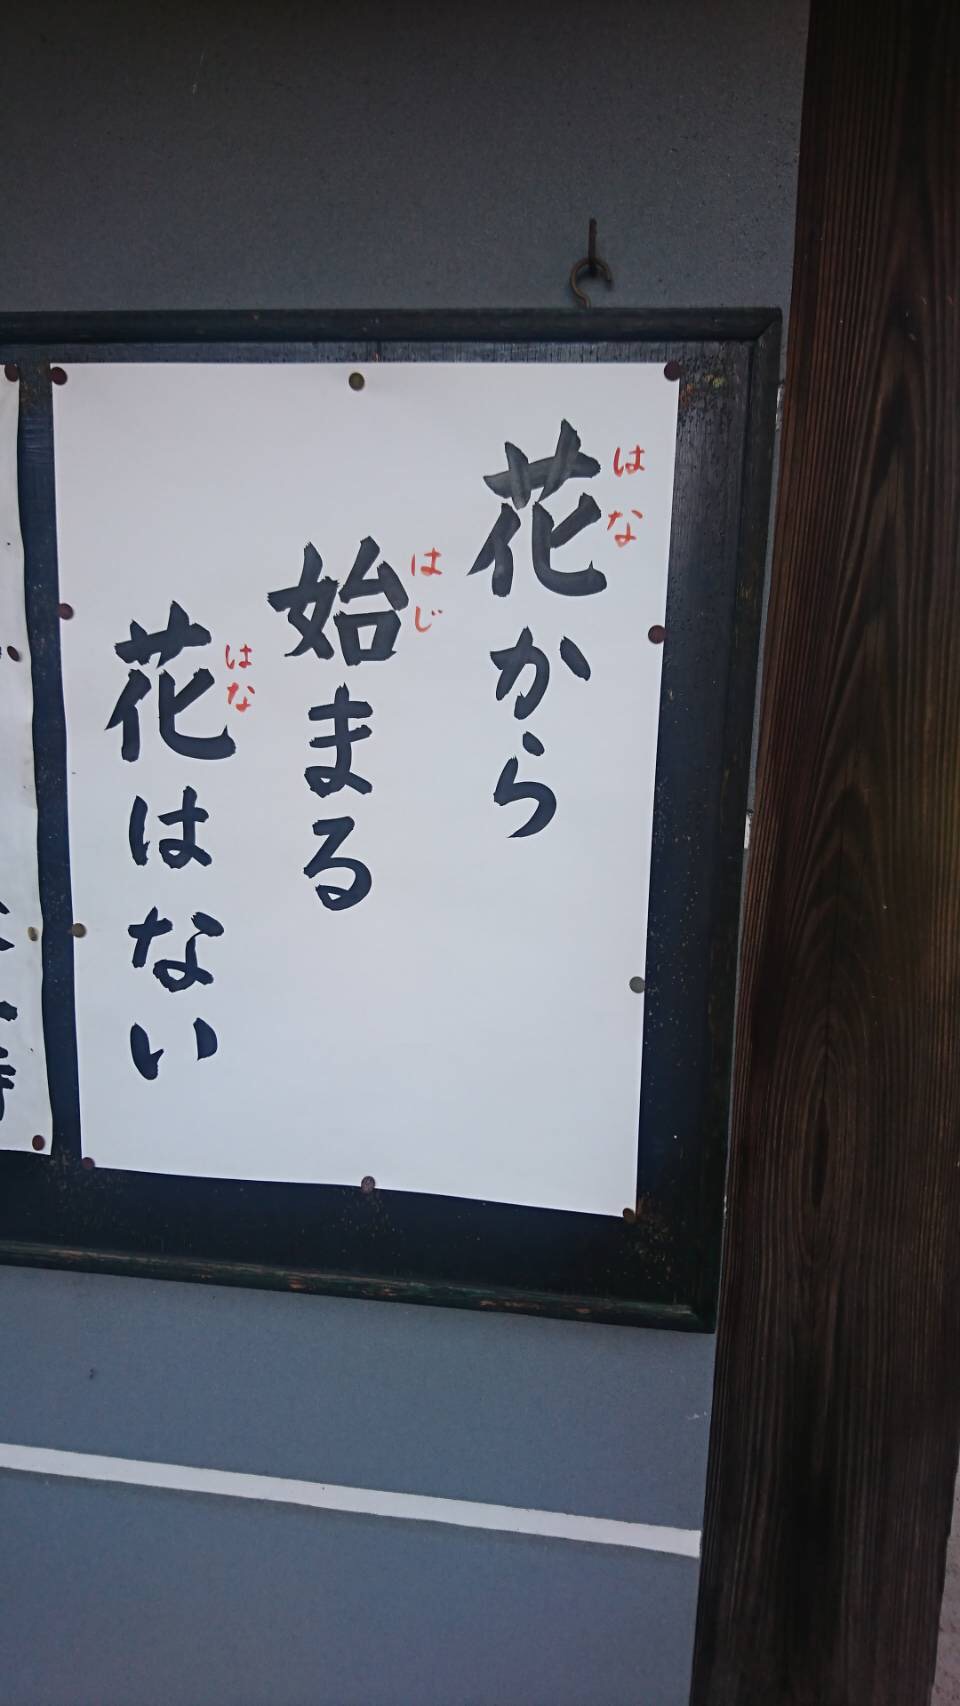 花から
はな
始まる
はじ
花はない
はな